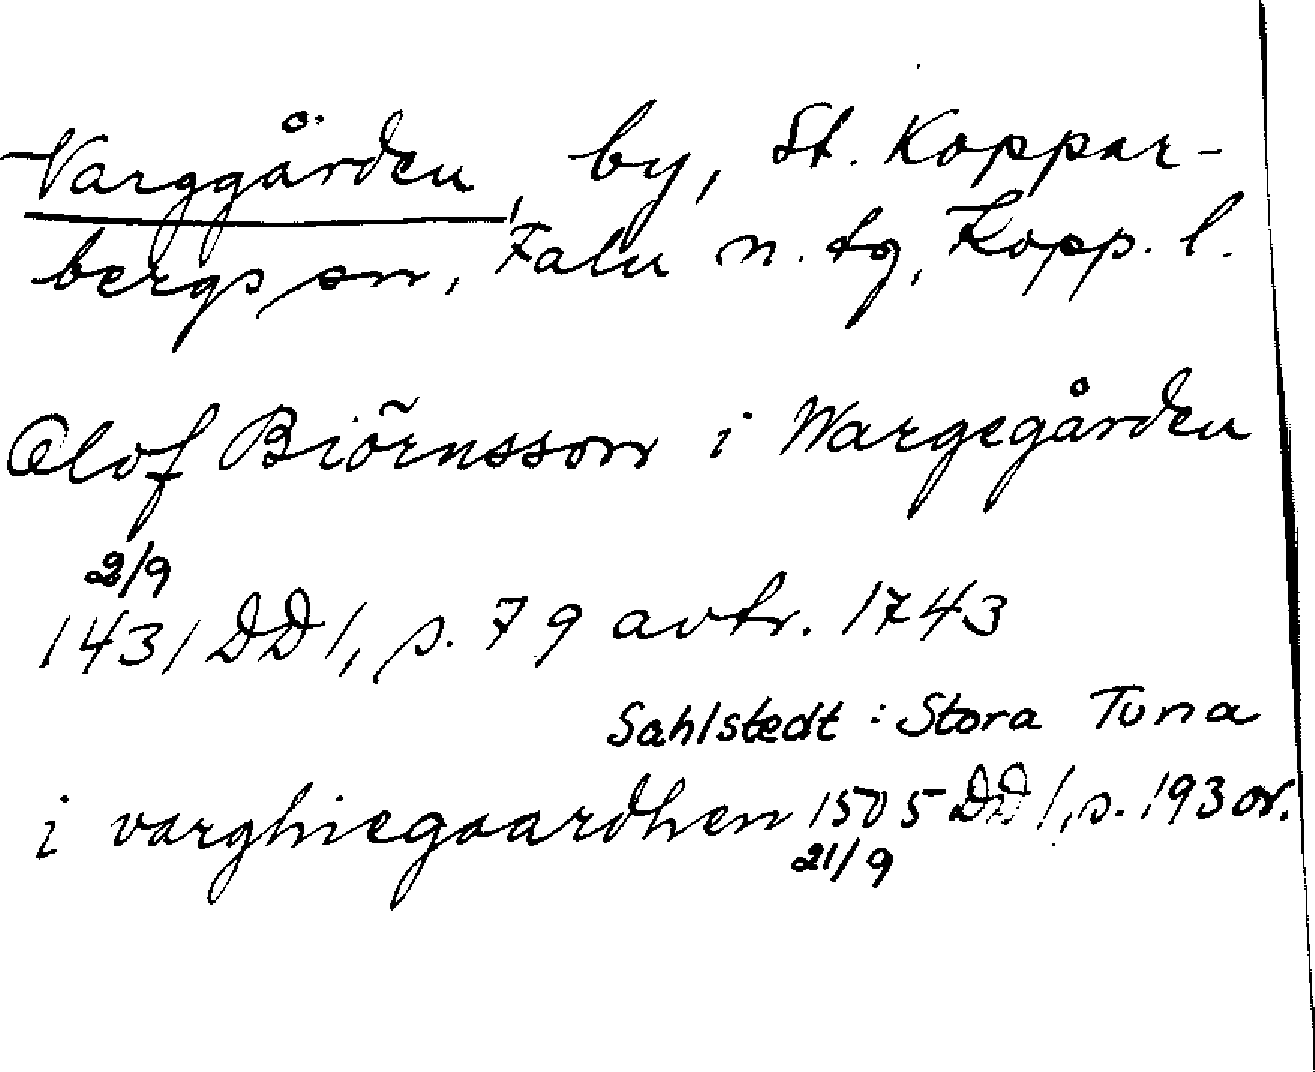 Varggården, by, St. Koppar-
bergs sn, Falu n. tg, Kopp. l.
Olof Biörnsson i Wargegården
2/9
1431 DD 1, s. 79 avtr. 1743
Sahlstedt : Stora Tuna
i varghiegaardhen 1505 DD 1, s. 193 or.
21/9